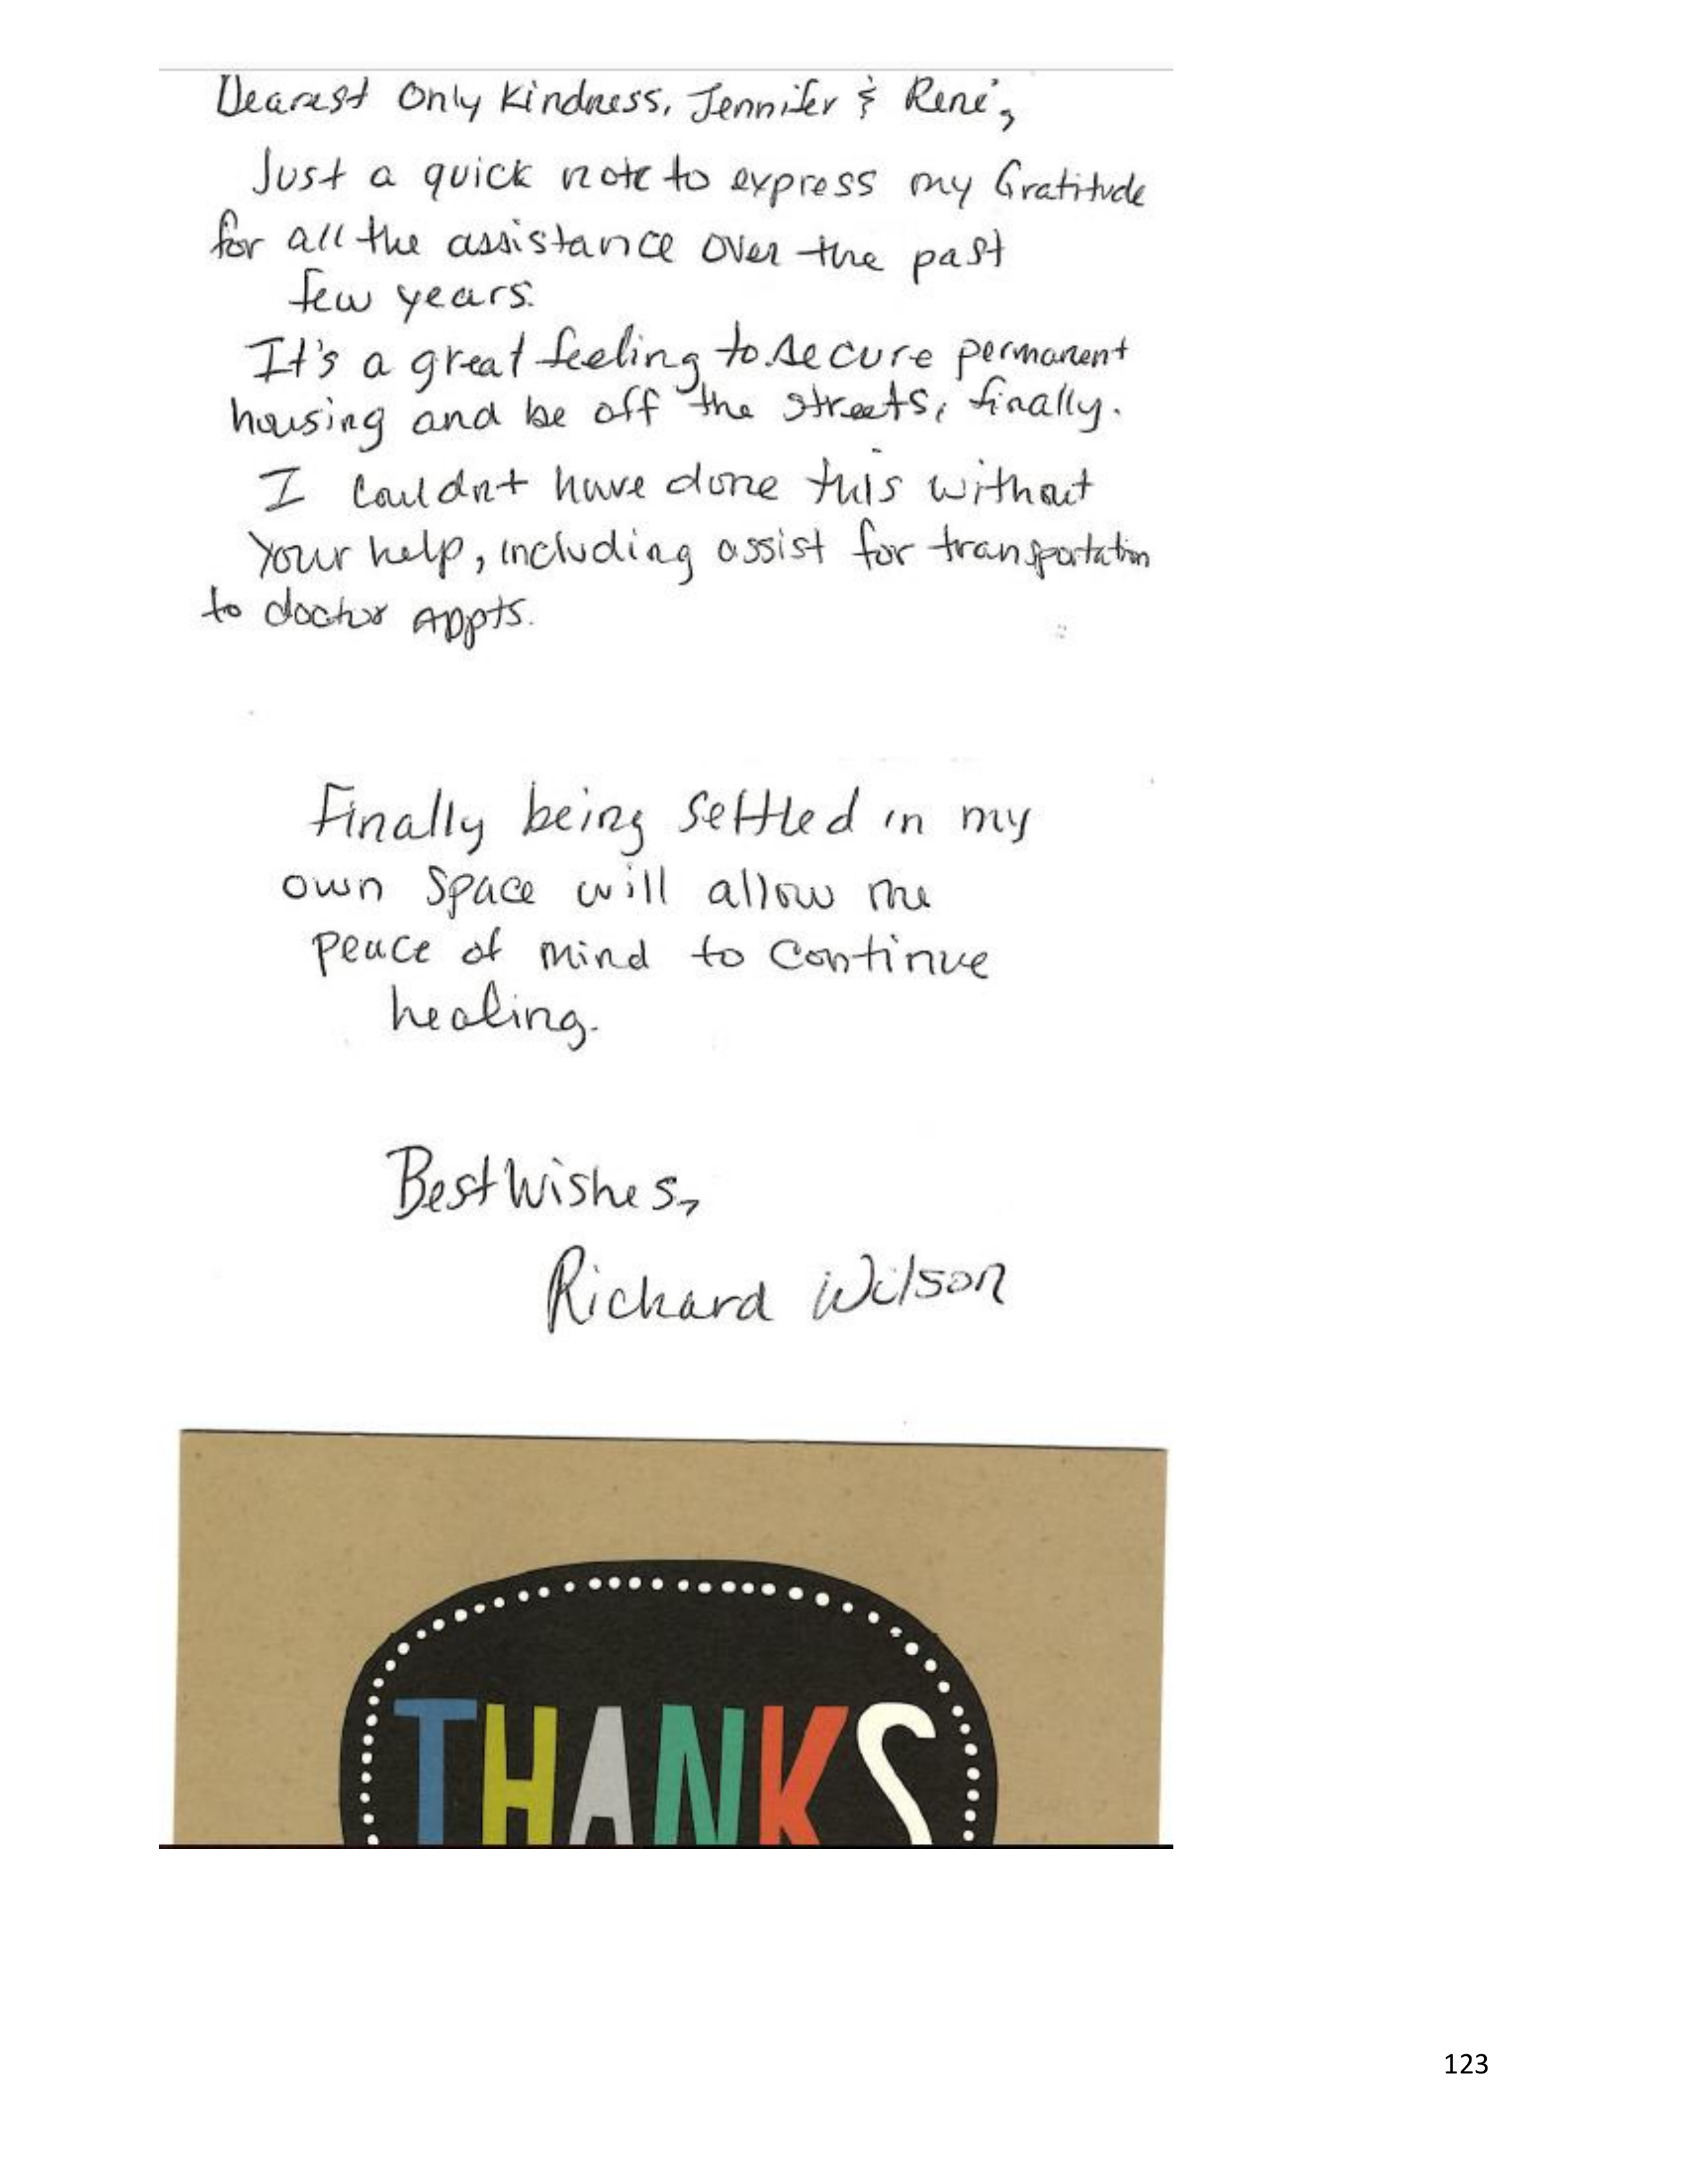 Dearest Only Kindness, Jennifer & René,
Just a quick note to express my Gratitude
for all the assistance over the past
few years.
It's a great feeling to secure permanent
housing and be off the streets, finally.
I couldnt have done this without
Your help, including assist for transportation
to doctor Appts.
Finally being settled in my
own space will allow me
peace of mind to continue
healing.
Best Wishes,
Richard Wilson
THANKS
123